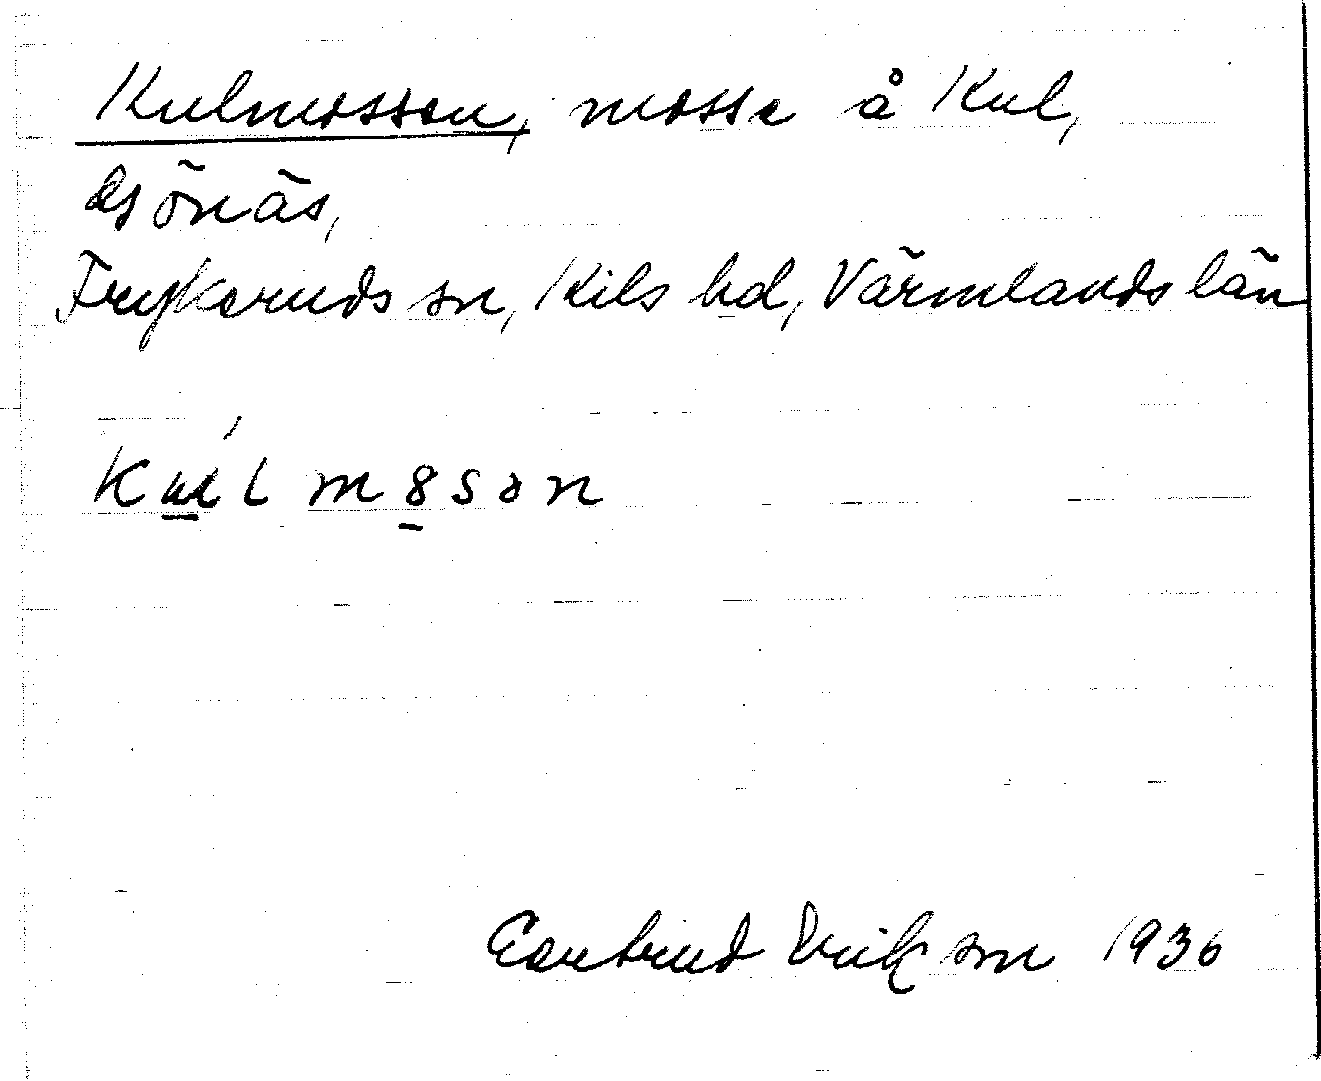 Kulmossen, mosse å Kul,
Ds önäs,
Frykeruds sn, Kils hd, Värmlands län
Kuĺl m8sən
Gertrud Erikson 1936